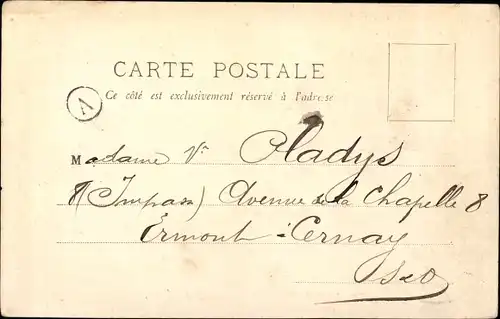 CARTE POSTALE
Ce côté est exclusivement réservé à l'adresse
A
Madame Vᵉ Gladys
8 (Impass) Avenue de la Chapelle 8
Ermont-Cernay
S&O